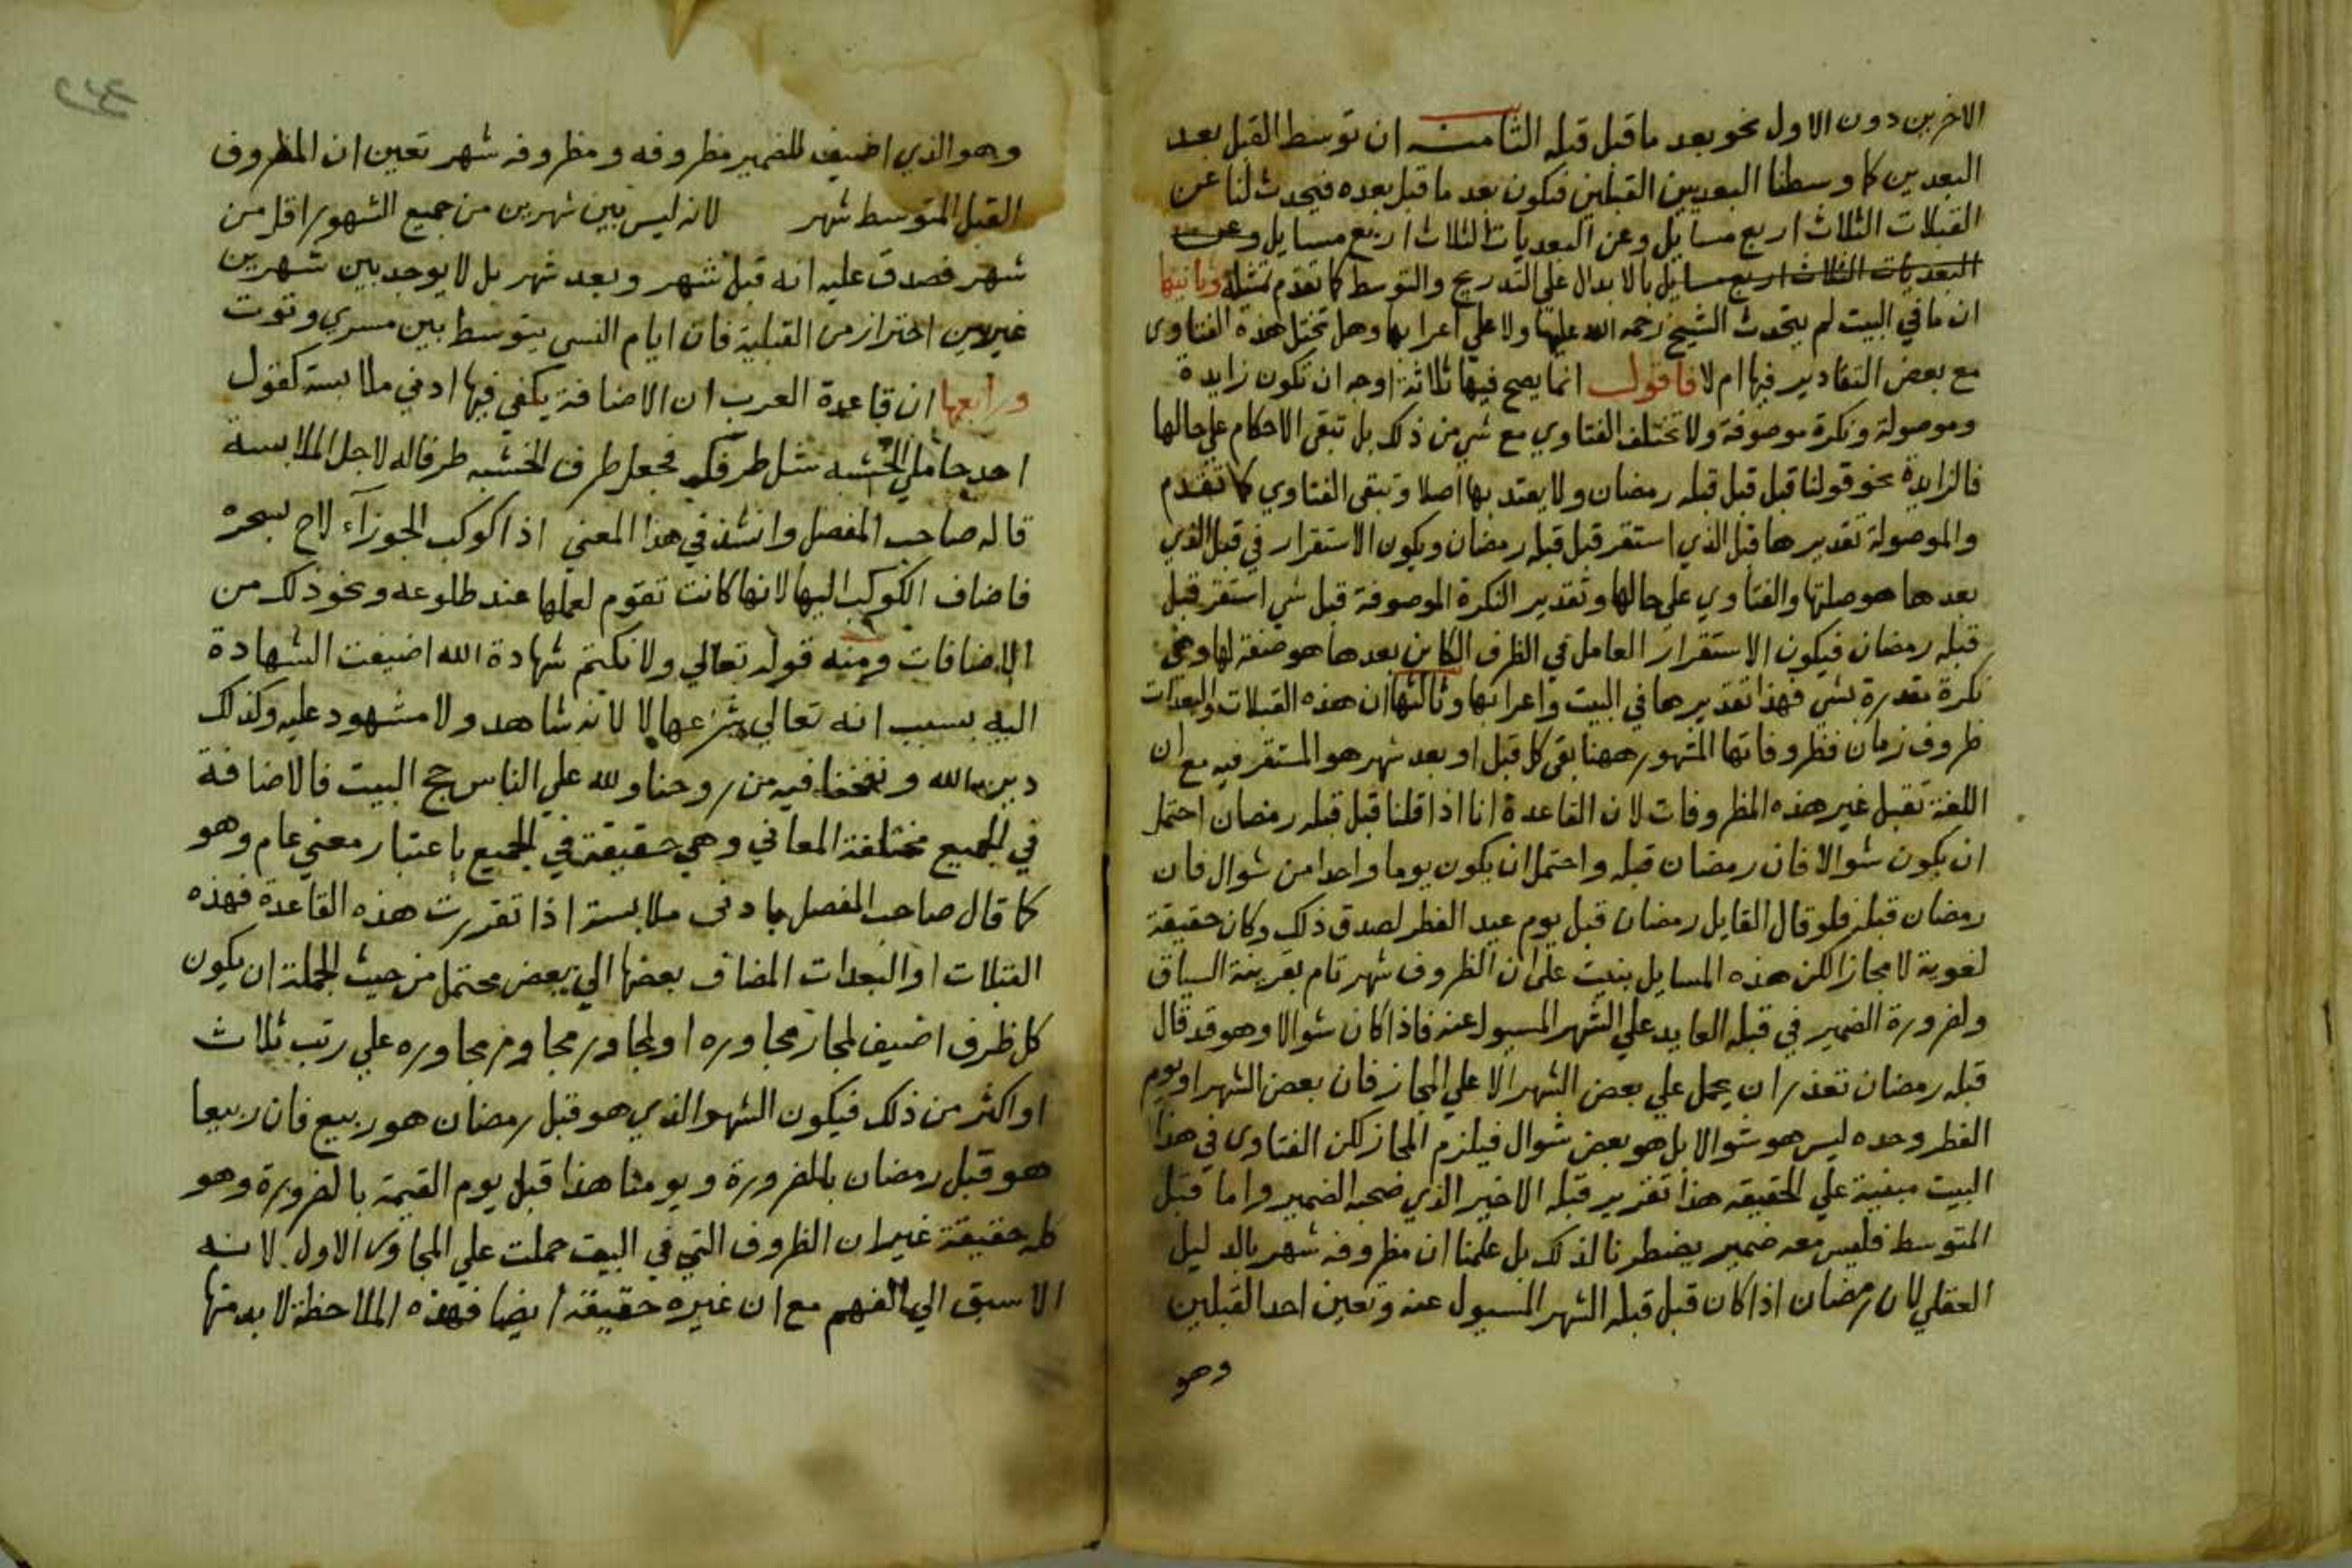 الاخرين دون الاول نحو بعد ما قبل قبله الثامنه ان توسط القبل بعد
البعدين كما وسطنا البعد بين القبلين فيكون بعد ما قبل بعده فيحدث لنا عن
القبلات الثلاث اربع مسايل وعن البعديات الثلاث اربع مسايل وعن
البعديات الثلاث اربع مسايل بالابدال على التدريج والتوسط كما تقدم تمثيله وثانيها
ان ما في البيت لم يتحدث الشيخ رحمه الله عليها ولا على اعرابها وهل تختل هذه الفتاوى
مع بعض التقادير فيها ام لا فاقول انما يصح فيها ثلاثة اوجه ان تكون زايدة
وموصولة ونكرة موصوفة ولا تختلف الفتاوي مع شي من ذلك بل تبقى الاحكام على حالها
فالزايدة نحو قولنا قبل قبل قبله رمضان ولا يعتد بها اصلا وتبقى الفتاوي كما تقدم
والموصولة تقديرها قبل الذي استقر قبل قبله رمضان ويكون الاستقرار في قبل الذي
بعدها هو صلتها والفتاوي على حالها وتقدير النكرة الموصوفة قبل شي استقر قبل
قبله رمضان فيكون الاستقرار العامل في الظرف الكاين بعدها هو صفة لها وهي
نكرة مقدرة بشي فهذا تقديرها في البيت واعرابها وثالثها ان هذه القبلات والبعدات
ظروف زمان فظروفاتها الشهور ههنا بقى كل قبل او بعد شهر هو المستقر فيه مع ان
اللغة تقبل غير هذه المظروفات لان القاعدة انا اذا قلنا قبل قبله رمضان احتمل
ان يكون شوالا فان رمضان قبله واحتمل ان يكون يوما واحدا من شوال فان
رمضان قبله فلو قال القايل رمضان قبل يوم عيد الفطر لصدق ذلك وكان حقيقة
لغوية لا مجازا لكن هذه المسايل بنيت على ان الظروف شهر تام بقرينة السياق
ولضرورة الضمير في قبله العايد على الشهر المسيول عنه فاذا كان شوالا وهو قد قال
قبله رمضان تعذر ان يحمل على بعض الشهر الا على المجاز فان بعض الشهر او يوم
الفطر وحده ليس هو شوالا بل هو بعض شوال فيلزم المجاز لكن الفتاوى في هذا
البيت مبنية على الحقيقه هذا تقرير قبله الاخير الذي ضحبه الضمير واما قبل
المتوسط فليس معه ضمير يضطرنا لذلك بل علمنا ان مظروفه شهر بالدليل
العقلي لان رمضان اذا كان قبل قبله الشهر المسيول عنه وتعين احد القبلين
وهو
وهو الذي اضيف للضمير مظروفه ومظروفه شهر تعين ان المظروف
القبل المتوسط شهر لانه ليس بين شهرين من جميع الشهور اقل من
شهر فصدق عليه انه قبل شهر وبعد شهر بل لا يوجد بين شهرين
غير احتراز من القبلية فان ايام النسي يتوسط بين مسري وتوت
ورابعها ان قاعدة العرب ان الاضافة يكفي فيها ادني ملابسة كقول
احد حاملي الخشبه شل طرفك فجعل طرف الخشبه طرفا له لاجل الملابسة
قاله صاحب المفصل وانشد في هذا المعني اذا كوكب الجوزآء لاح بسحره
فاضاف الكوكب اليها لانها كانت تقوم لعملها عند طلوعه ونحو ذلك من
الاضافات ومنه قوله تعالي ولا نكتم شهادة الله اضيفت الشهادة
اليه بسبب انه تعالي شرعها لا لانه شاهد ولا مشهود عليه وكذلك
دين الله ونفخنا فيه من روحنا ولله علي الناس حج البيت فالاضافة
في الجميع مختلفة المعاني وهي حقيقة في الجميع باعتبار معني عام وهو
كما قال صاحب المفصل بادنى ملابسة اذا تقررت هذه القاعدة فهذه
القبلات او البعدات المضاف بعضها الي بعض محتمل من حيث الجملة ان يكون
كل ظرف اضيف لمجاز مجاوره او لمجاور مجاوم مجاوره علي رتب ثلاث
او اكثر من ذلك فيكون الشهو الذي هو قبل رمضان هو ربيع فان ربيعا
هو قبل رمضان بالضرورة ويومنا هذا قبل يوم القيمة بالضرورة وهو
كله حقيقة غير ان الظروف التي في البيت حملت علي المجاور الاول لانه
الاسبق الي الفهم مع ان غيره حقيقة ايضا فهذه الملاحظة لا بد منها